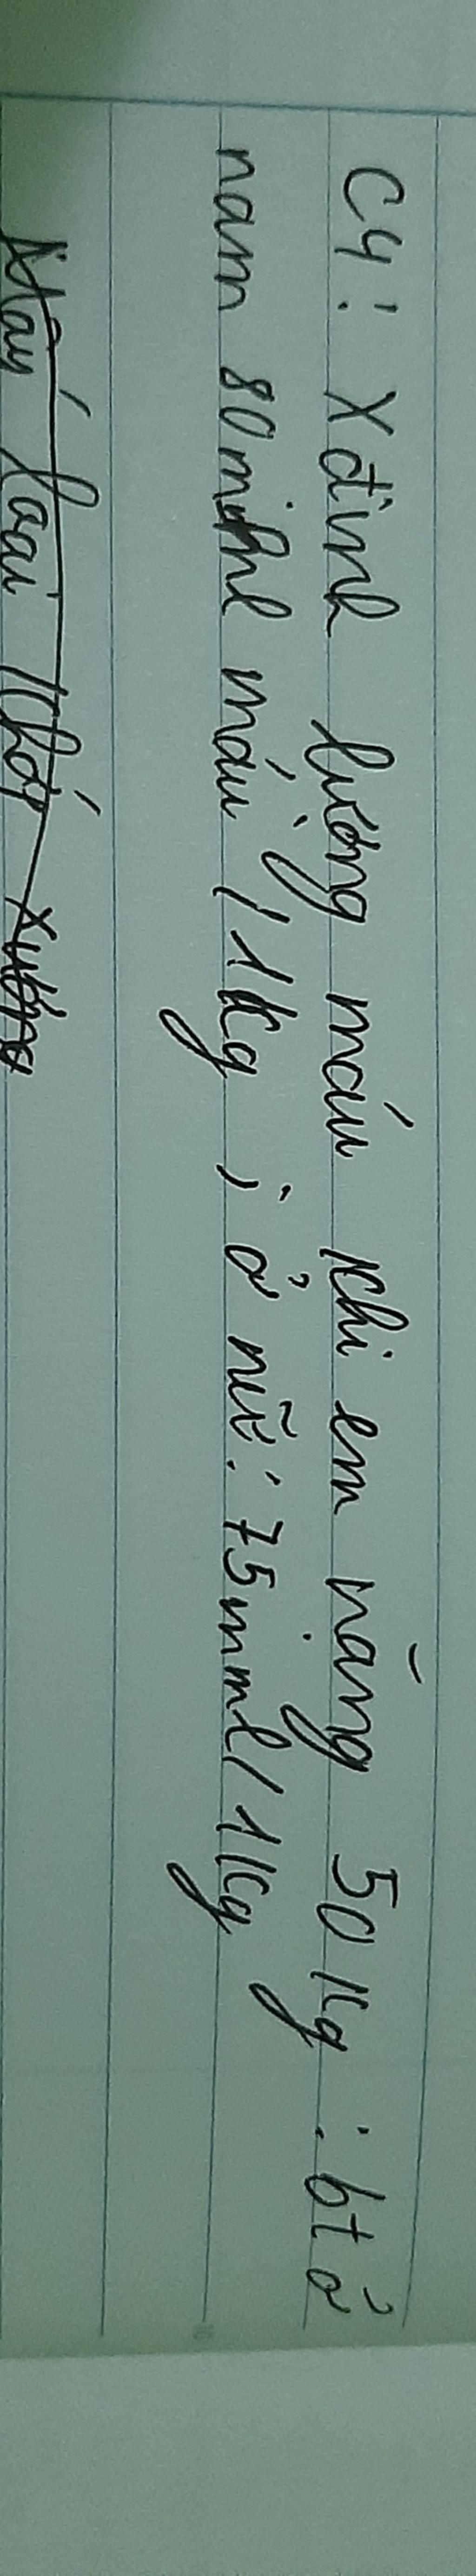 C4: Xđịnh lượng máu khi em nặng 50kg: bt ở
nam 80ml máu / 1kg ; ở nữ: 75mml / 1kg
Máu loại khớp xương